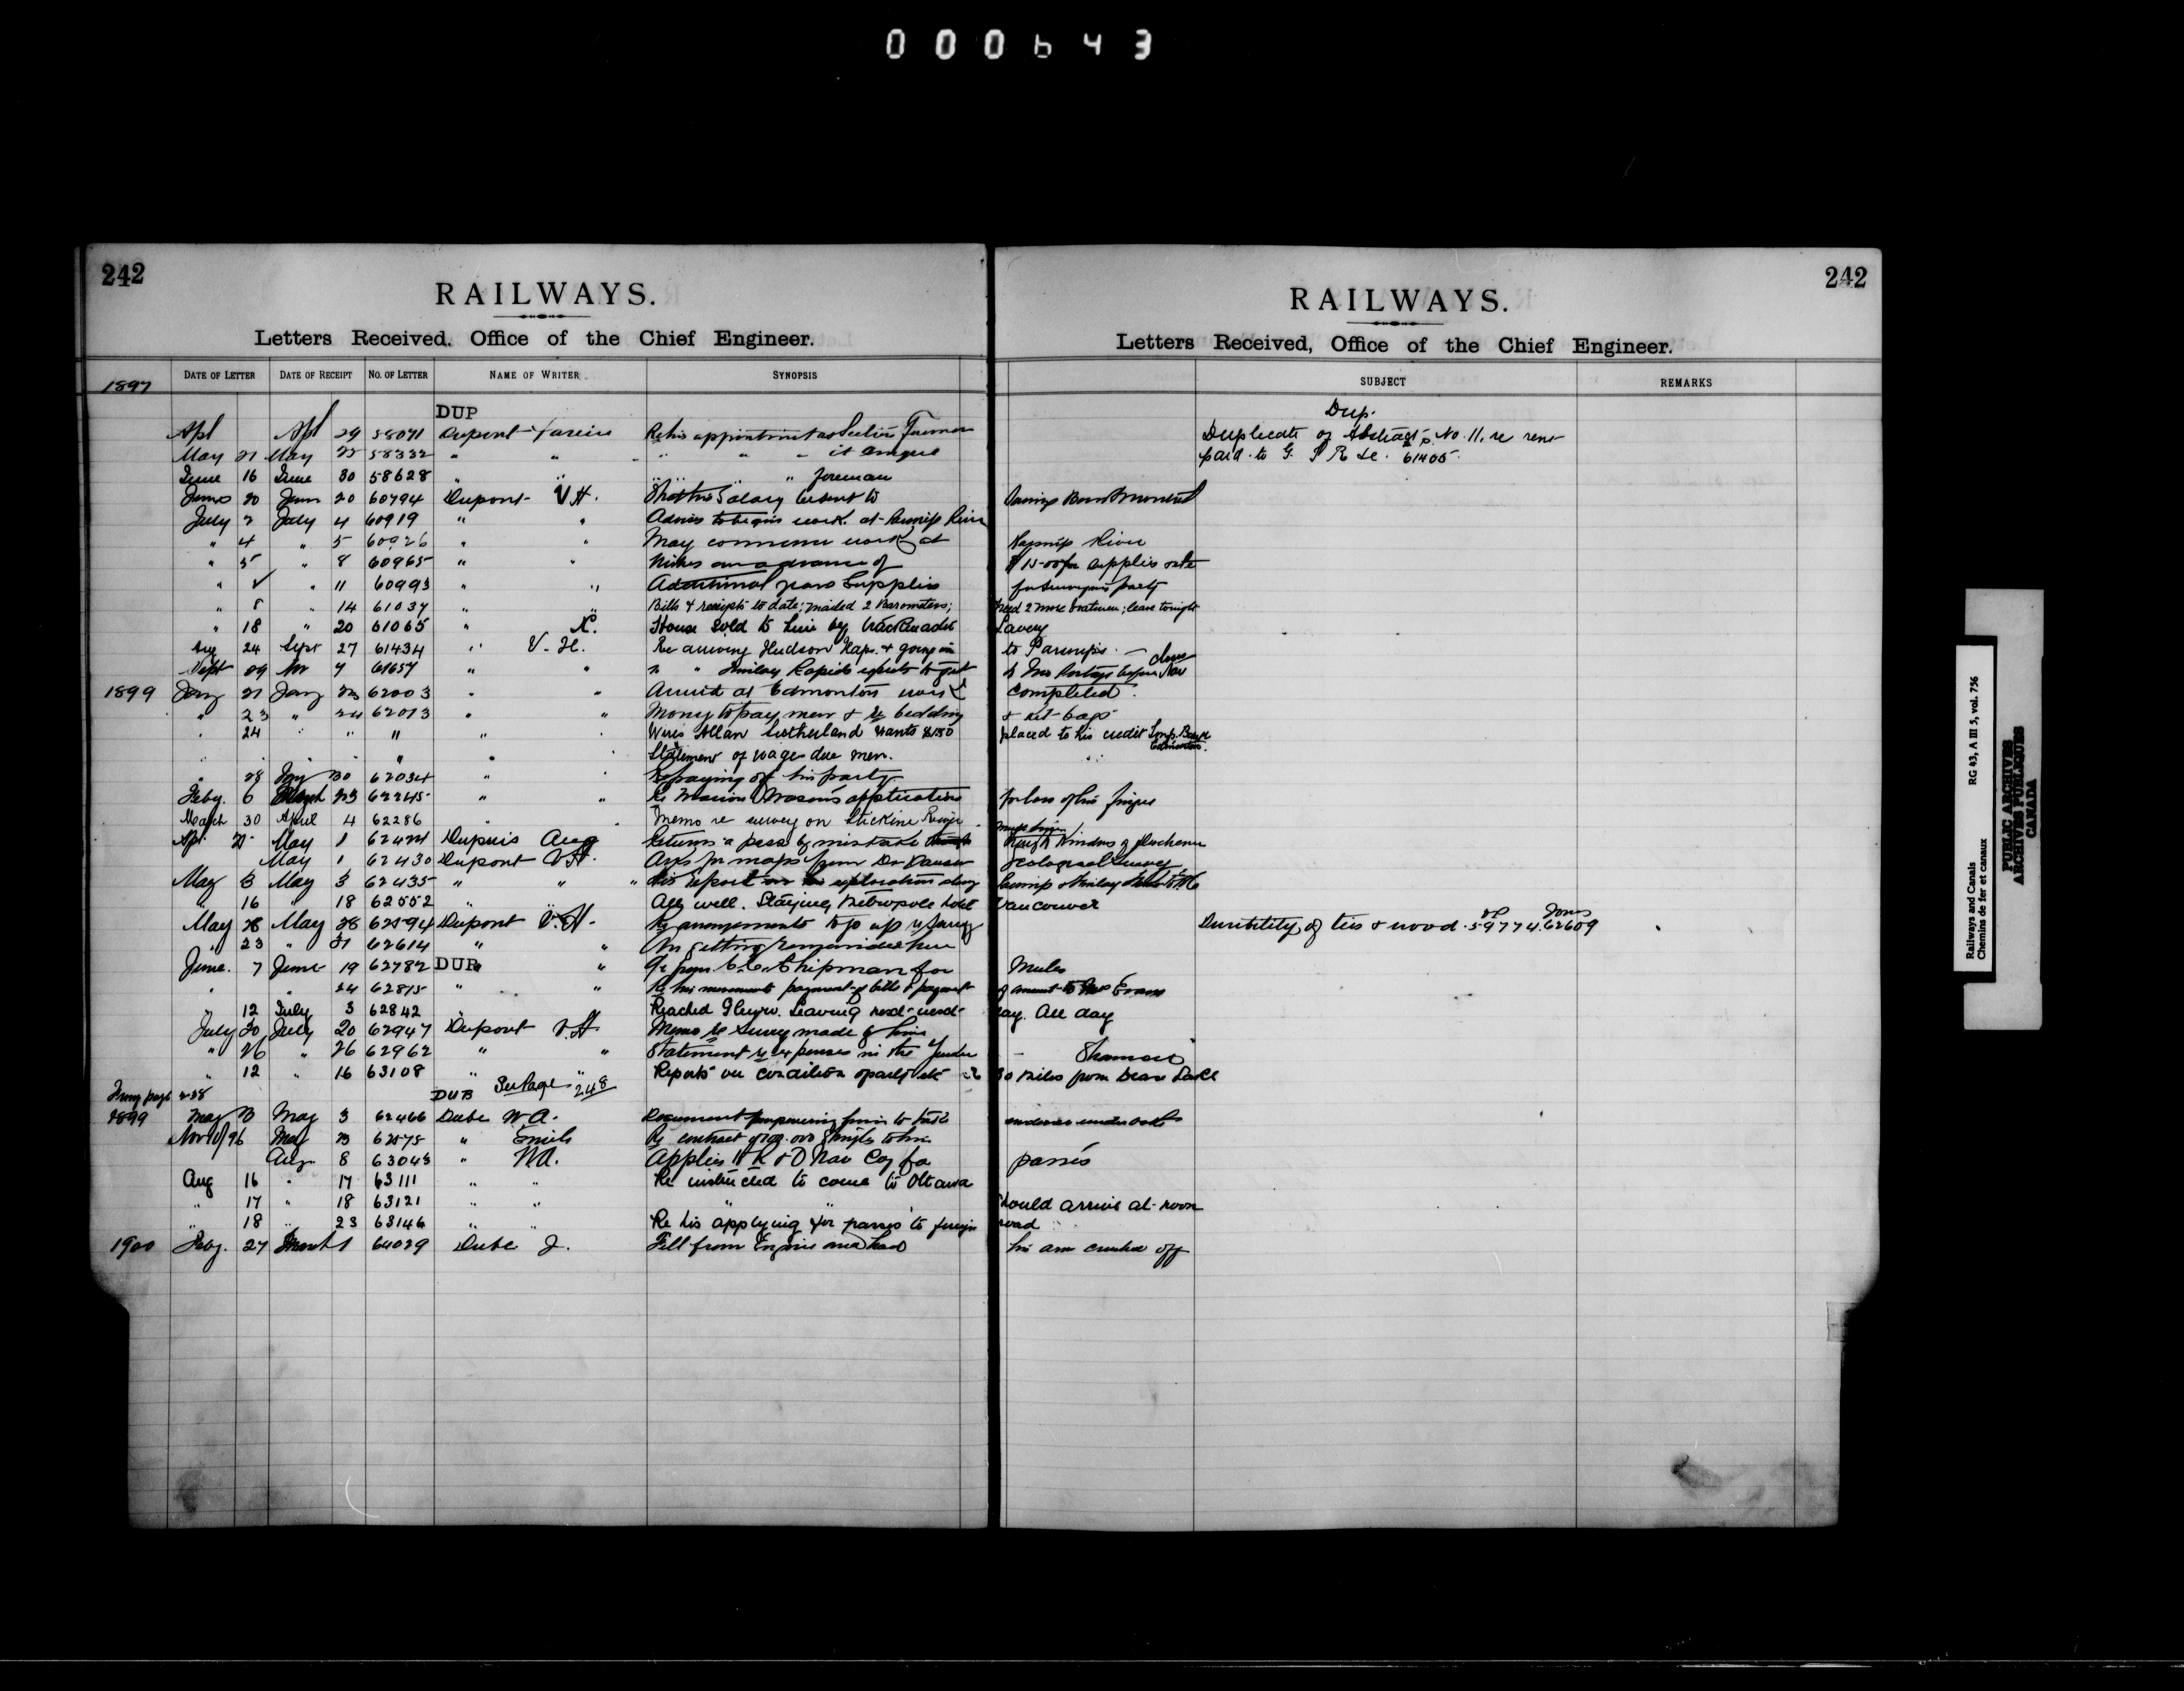 000643
242
RAILWAYS.
Letters Received, Office of the Chief Engineer.
1897
DATE OF LETTER DATE OF RECEIPT NO. OF LETTER NAME OF WRITER. SYNOPSIS
DUP
Apl Apl 29 58071 Dupont Re his appointment as Section Foreman
May 21 May 22 58332 " " " " "
June 16 June 30 58628 " " " " " foreman
June 20 June 20 60794 Dupont V.H. Salary be sent to
July 2 July 4 60919 " " to begin work at Parsnip River
" 4 " 5 60926 " " May commence work at
" 5 " 8 60965 " " Wires an advance of
" " 11 60993 " " Additional Supplies
" 8 " 14 61037 " " Bills & receipts to date; mailed 2 Barometers;
" 18 " 20 61065 " X. House sold to him by trackmaster
Aug 24 Sept 27 61434 " V. H. Re arriving Hudson Hope & going in
Sept 29 Nov 4 61657 " " " " Finlay Rapids expects to get
1899 Jany 21 Jany 23 62003 " " Arrived at Edmonton work
" 23 " 24 62013 " " Money to pay men & re bedding
" 24 " " " " Wires Allan Sutherland wants $150
" " " " " Statement of wages due men.
" 28 Jany 30 62034 " Re paying off his party
Feby. 6 March 23 62245 " " Re application
March 30 April 4 62286 " Memo re survey on Stickine River
Apl. May 1 62424 Dupuis Aug Returns a pass by mistake
May 1 62430 Dupont V.H. Asks for maps from Dr Dawson
May 3 May 3 62435 " " " His report exploration along
" 16 " 18 62552 " " All well. Staying Metropole hotel
May 28 May 28 62594 Dupont V.H. Re arrangements to go up re survey
" 23 " 31 62614 " " Re getting
June. 7 June 19 62782 DUP " " from C.C. Chipman for
" " 24 62815 " " Re his movements payment of bills & payment
" 12 July 3 62842 " Reached Glenora. Leaving
July 20 July 20 62947 Dupont V.H. Memo re Survey made by him
" 26 " 26 62962 " " Statement re expenses in the
" 12 " 16 63108 " " Reports on condition of party etc
From page 238 DUB See Page 248
1899 May 3 May 3 62466 Dube W A. Document empowering him to take
Nov 10/96 May 23 62575 " Emile Re contract of Shingles to him
Aug 8 63043 " W.A. Applies to R & O Nav Coy for
Aug 16 " 17 63111 " " Re instructed to come to Ottawa
" 17 " 18 63121 " " " "
" 18 " 23 63146 " " Re his applying for passes to foreign
1900 Feby. 27 March 1 64029 Dube J. Fell from Engine and had
242
RAILWAYS.
Letters Received, Office of the Chief Engineer.
SUBJECT REMARKS
Dup.
Duplicate of Abstract No. 11. re rent
paid to G. T R &c. 61405.
Savings Bank Montreal
Parsnip River
$1500 for supplies
for Surveying party
need 2 more boatmen; leave tonight
Lavery
to Parsnips.
completed.
& kit bags
placed to his credit Imp. Bank
Edmonton.
for loss of his finger
Geological Survey
Parsnip & Finlay
Vancouver
Durability of ties & wood. 59774. 62609
Mules
of amount to Evans
day. All day
30 miles from Dease Lake
evidence under oath
passes
Should arrive at noon
road
his arm crushed off
Railways and Canals RG 43, A III 5, vol. 756
Chemins de fer et canaux
PUBLIC ARCHIVES
ARCHIVES PUBLIQUES
CANADA